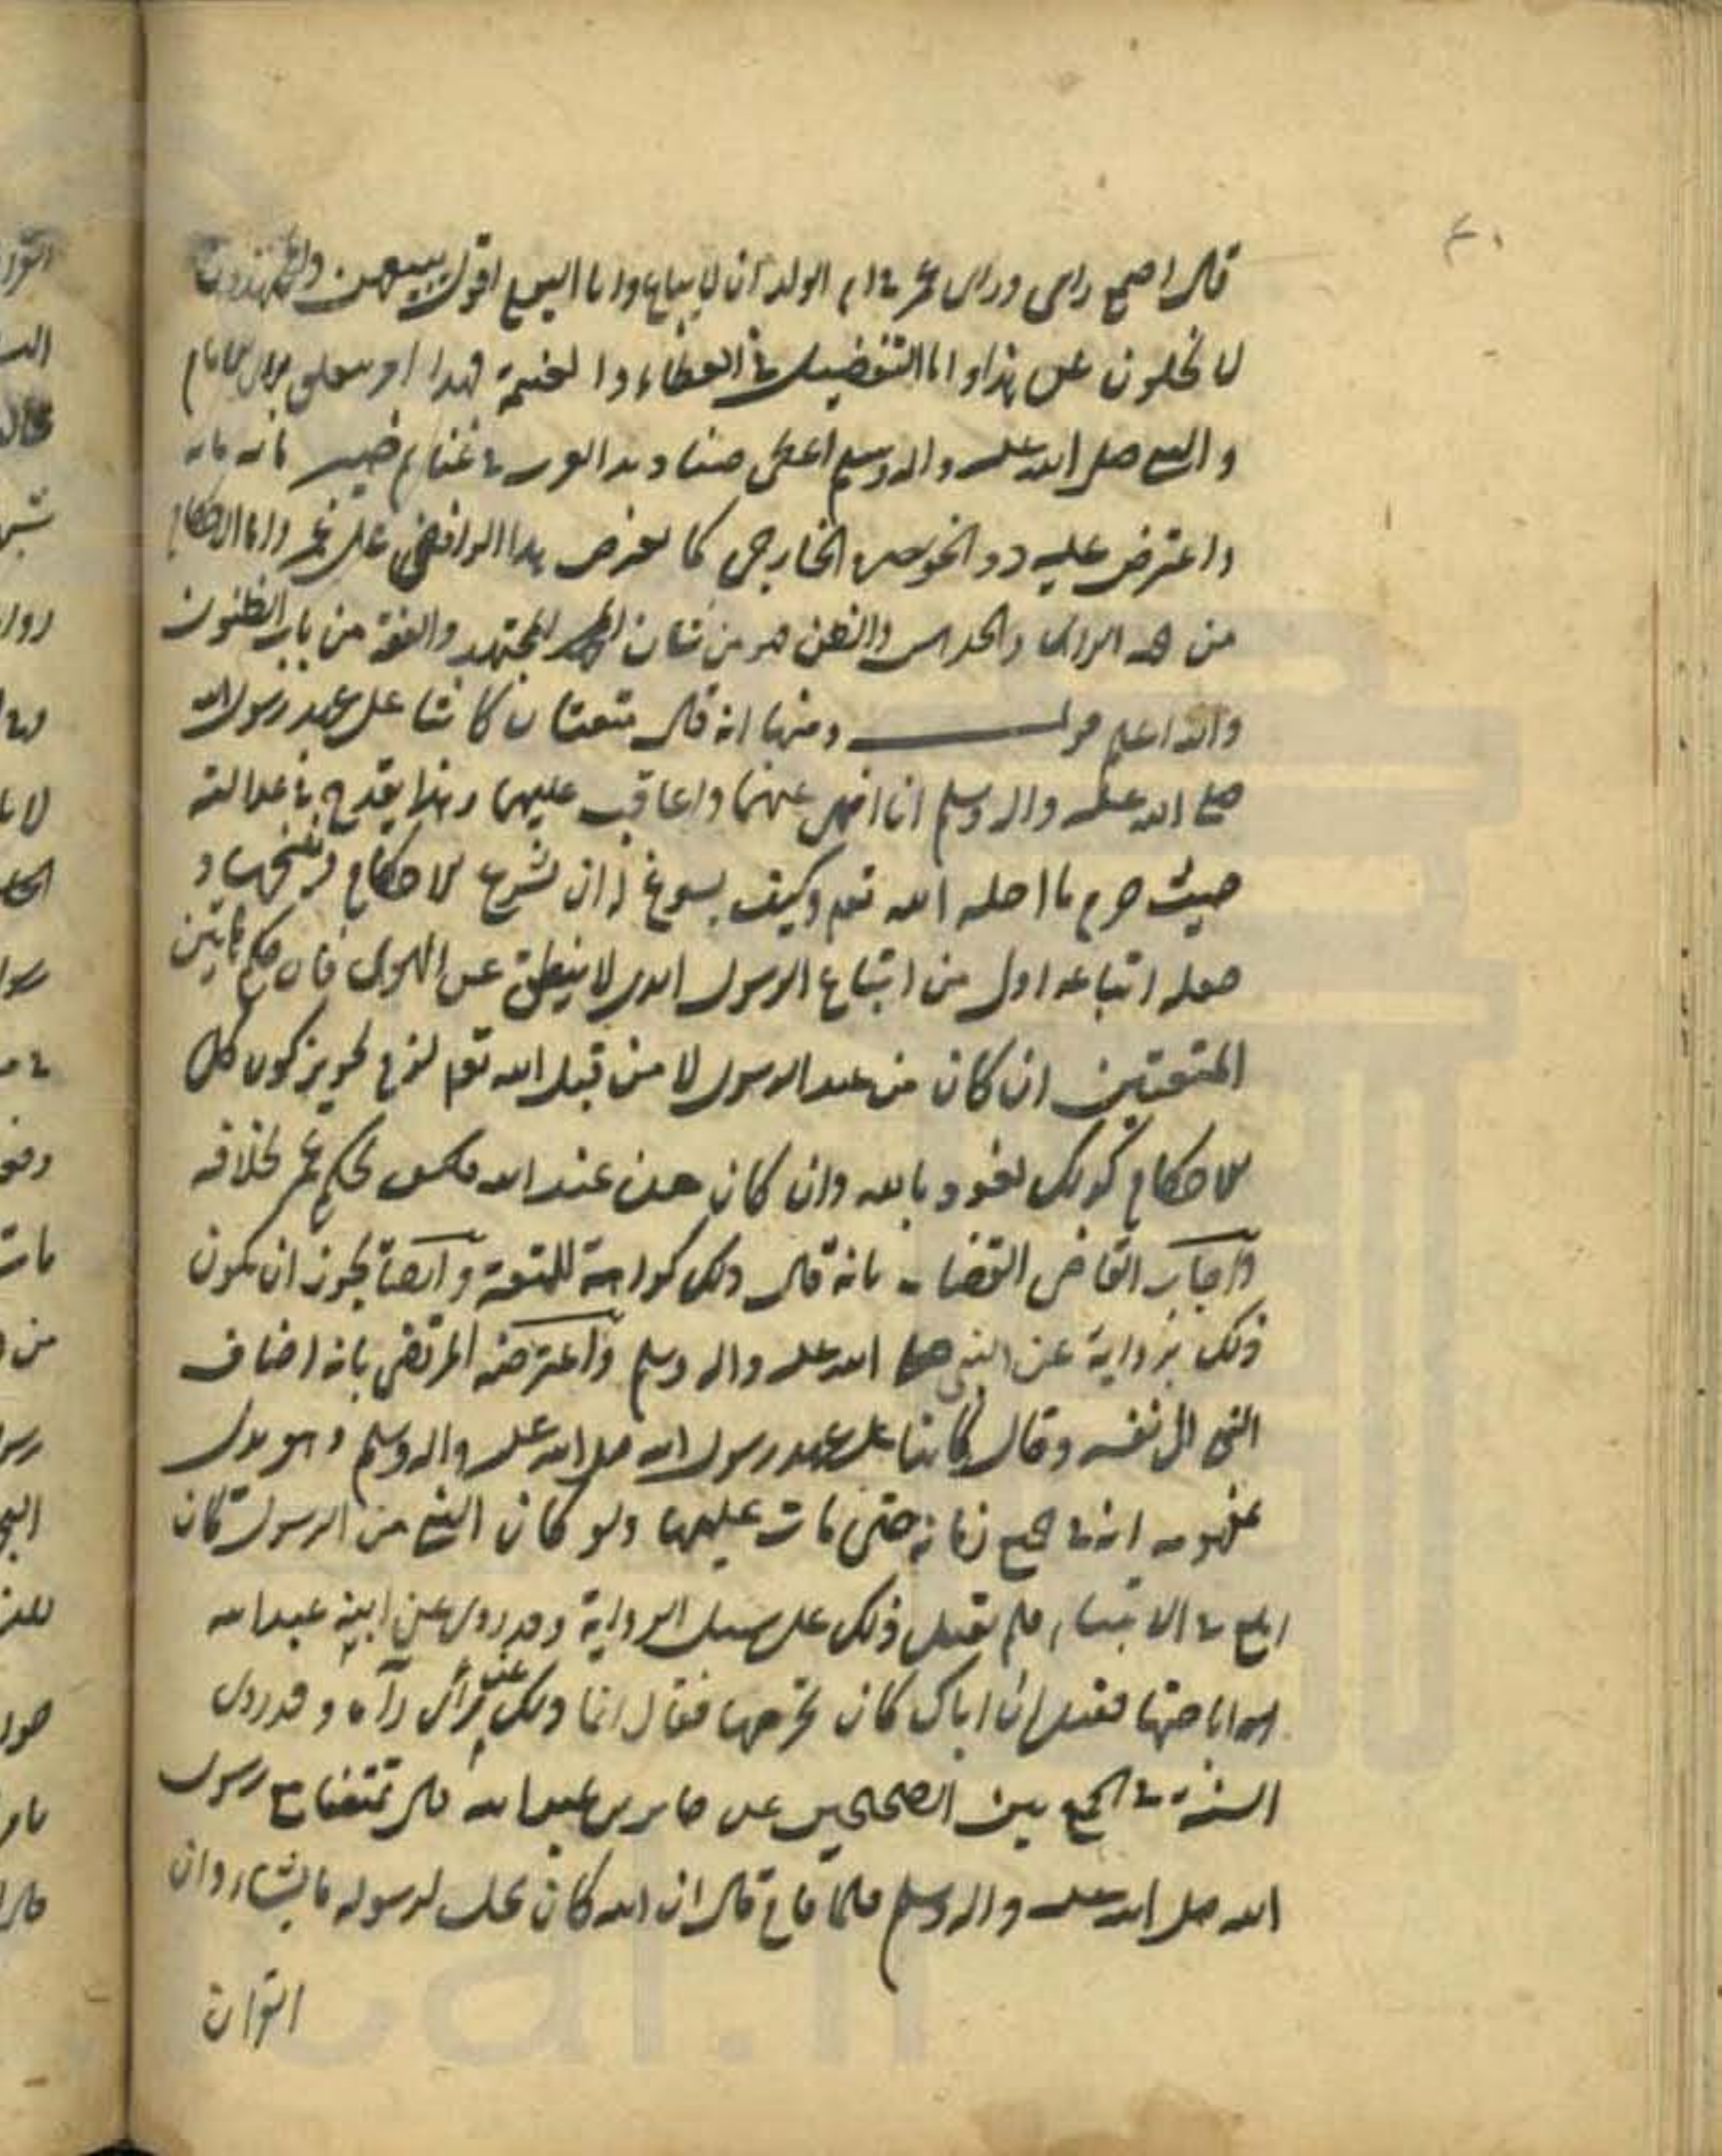 قال اجمع رايي وراي عمر في ام الولد ان لا يباع واما اليوم اقول ببيعهن
لا يخلون عن هذا واما التفضيل في العطاء والغنيمة فهذا امر يتعلق براي الامام
والنبي صلى الله عليه واله وسلم اعطى صناديد العرب في غنائم
واعترض عليه ذو الخويصرة الخارجي كما يعرض هذا الرافضي على عمر واما الاحكام
من جهة الراى والحدس والظن فهو من شان المجتهد والفقه من باب الظنون
والله اعلم قوله ومنها انه قال متعتان كانتا على عهد رسول الله
صلى الله عليه واله وسلم انا انهى عنهما واعاقب عليهما وهذا يقدح في عدالته
حيث حرم ما احله الله تعم وكيف يسوغ له ان يشرع الاحكام وينسخها و
جعله اتباعه اولى من اتباع الرسول الذي لا ينطق عن الهوى فان حكم هاتين
المتعتين ان كان من عند الرسول لا من قبل الله تعم لزم تجويز كون كل
الاحكام كذلك نعوذ بالله وان كان من عند الله فكيف يحكم عمر بخلافه
واجاب القاضي القضاة بانه قال ذلك كراهة للمتعة وايضا يجوز ان يكون
ذلك برواية عن النبي صلى الله عليه واله وسلم واعترضه المرتضى بانه اضاف
النهي الى نفسه وقال كانتا على عهد رسول الله صلى الله عليه واله وسلم وهو يدل
بمفهومه انه في جميع زمانه حتى مات عليهما ولو كان النهي من الرسول كان
ابلغ في الانتهاء فلم يقل ذلك على سبيل الرواية وقد روى عن ابنه عبد الله
اباحتها فقيل له ان اباك كان يحرمها فقال انما ذلك عن راى رآه وقد روى
السنة في الجمع بين الصحيحين عن جابر بن عبد الله قال تمتعنا مع رسول
الله صلى الله عليه واله وسلم فلما قام قال ان الله كان يحل لرسوله ما يشاء وان
القران